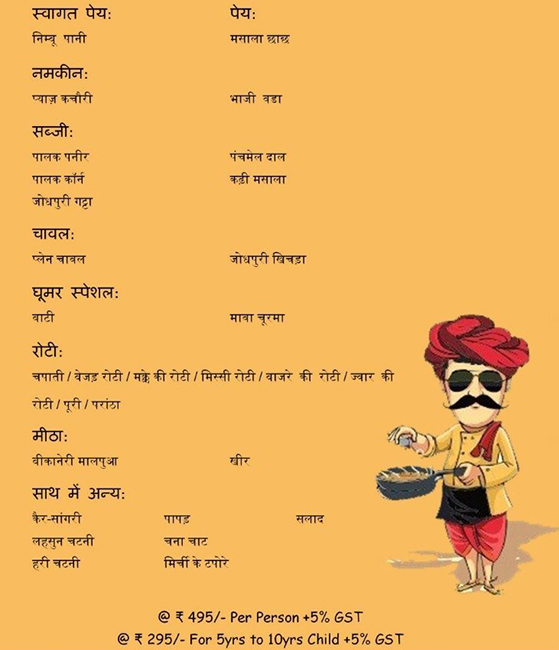 स्वागत पेय: पेय:
निम्बू पानी मसाला छाछ
नमकीन:
प्याज़ कचौरी भाजी वडा
सब्जी:
पालक पनीर पंचमेल दाल
पालक कॉर्न कढ़ी मसाला
जोधपुरी गट्टा
चावल:
प्लेन चावल जोधपुरी खिचड़ा
घूमर स्पेशल:
बाटी मावा चूरमा
रोटी:
चपाती / वेजड़ रोटी / मक्के की रोटी / मिस्सी रोटी / बाजरे की रोटी / ज्वार की
रोटी / पूरी / परांठा
मीठा:
बीकानेरी मालपुआ खीर
साथ में अन्य:
कैर-सांगरी पापड़ सलाद
लहसुन चटनी चना चाट
हरी चटनी मिर्ची के टपोरे
@ ₹ 495/- Per Person +5% GST
@ ₹ 295/- For 5yrs to 10yrs Child +5% GST